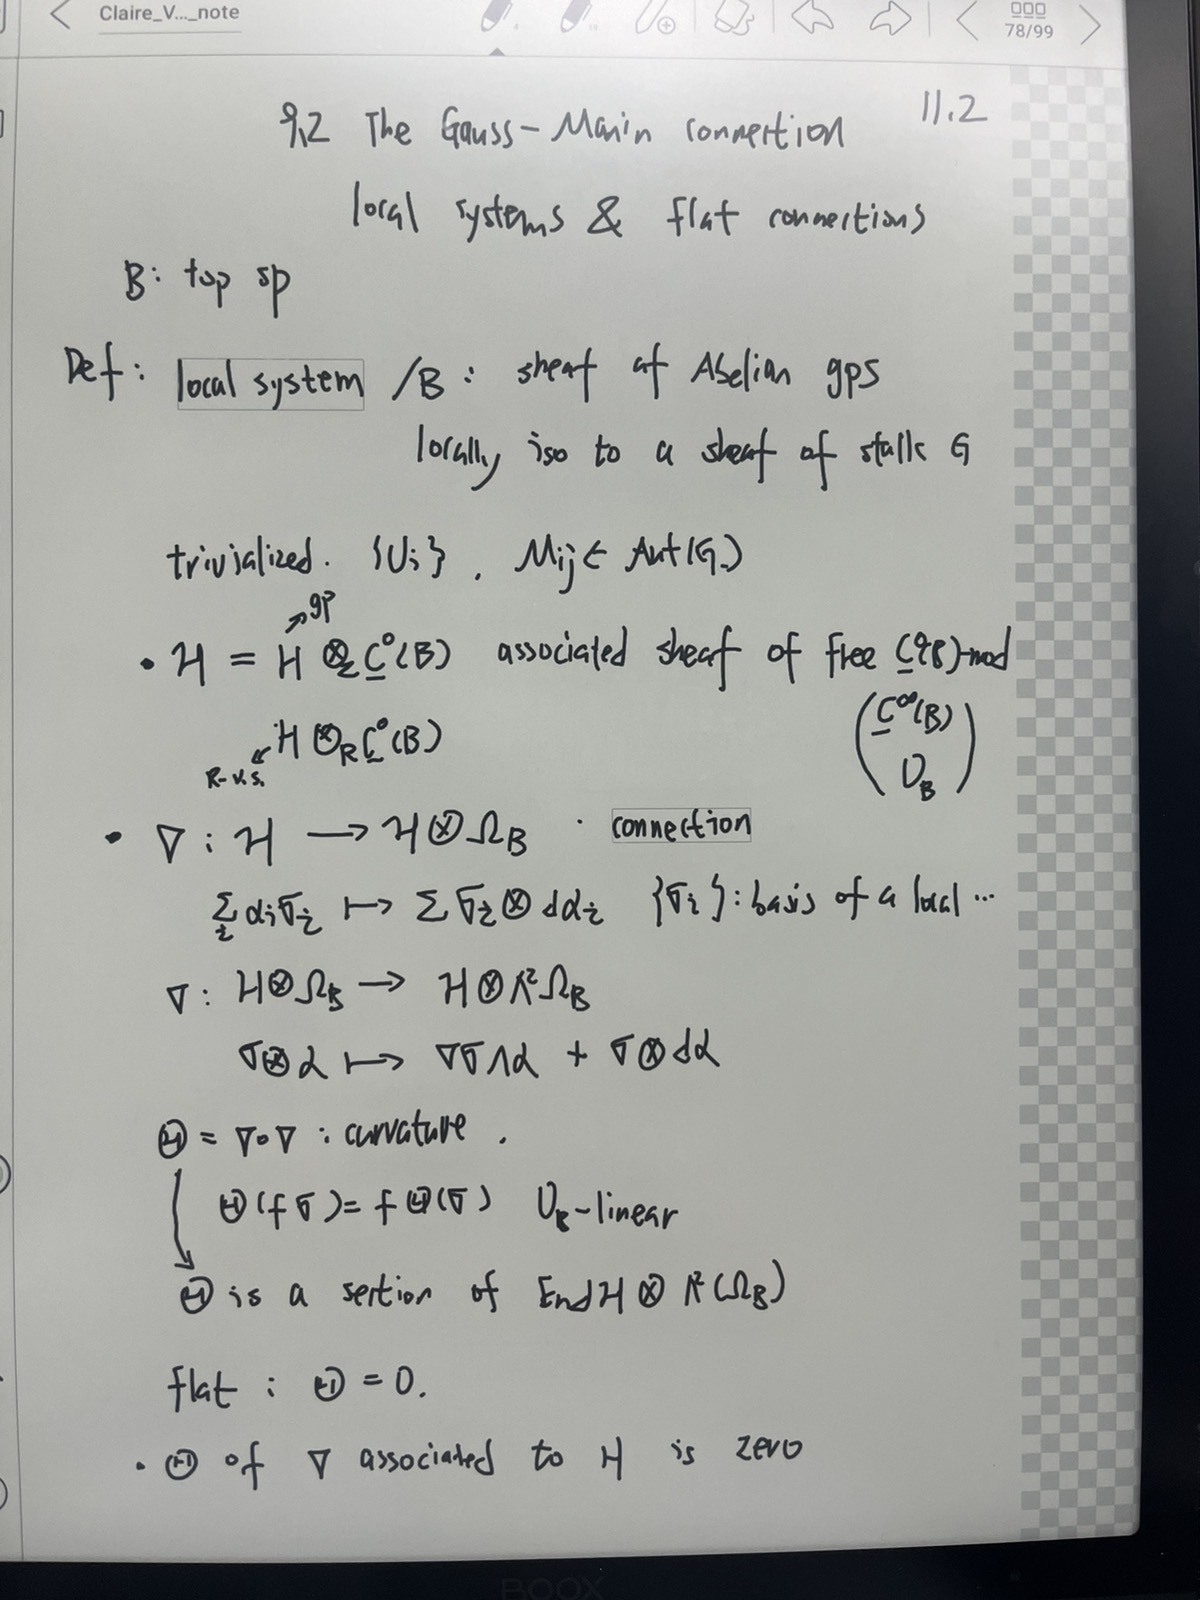 Claire_V..._note
78/99
11.2
9.2 The Gauss-Manin connection
local systems & flat connections
B: top sp
Def: local system /B : sheaf of Abelian gps
locally iso to a sheaf of stalk G
trivialized. {Ui}, Mij ∈ Aut(G)
↗gp
• ℋ = H ⊗_Z C⁰(B) associated sheaf of free C⁰(B)-mod
H ⊗_R C⁰(B)
R-v.s.
(C^∞(B)
O_B)
• ∇ : ℋ → ℋ⊗Ω_B . connection
Σ_i αiσi ↦ Σ σi⊗dαi {σi}: basis of a local ...
∇ : ℋ⊗Ω_B → ℋ⊗Λ²Ω_B
σ⊗α ↦ ∇σ∧α + σ⊗dα
Θ = ∇∘∇ : curvature.
Θ(fσ) = fΘ(σ) O_B-linear
Θ is a section of Endℋ ⊗ Λ²(Ω_B)
flat : Θ = 0.
• Θ of ∇ associated to H is zero
BOOX